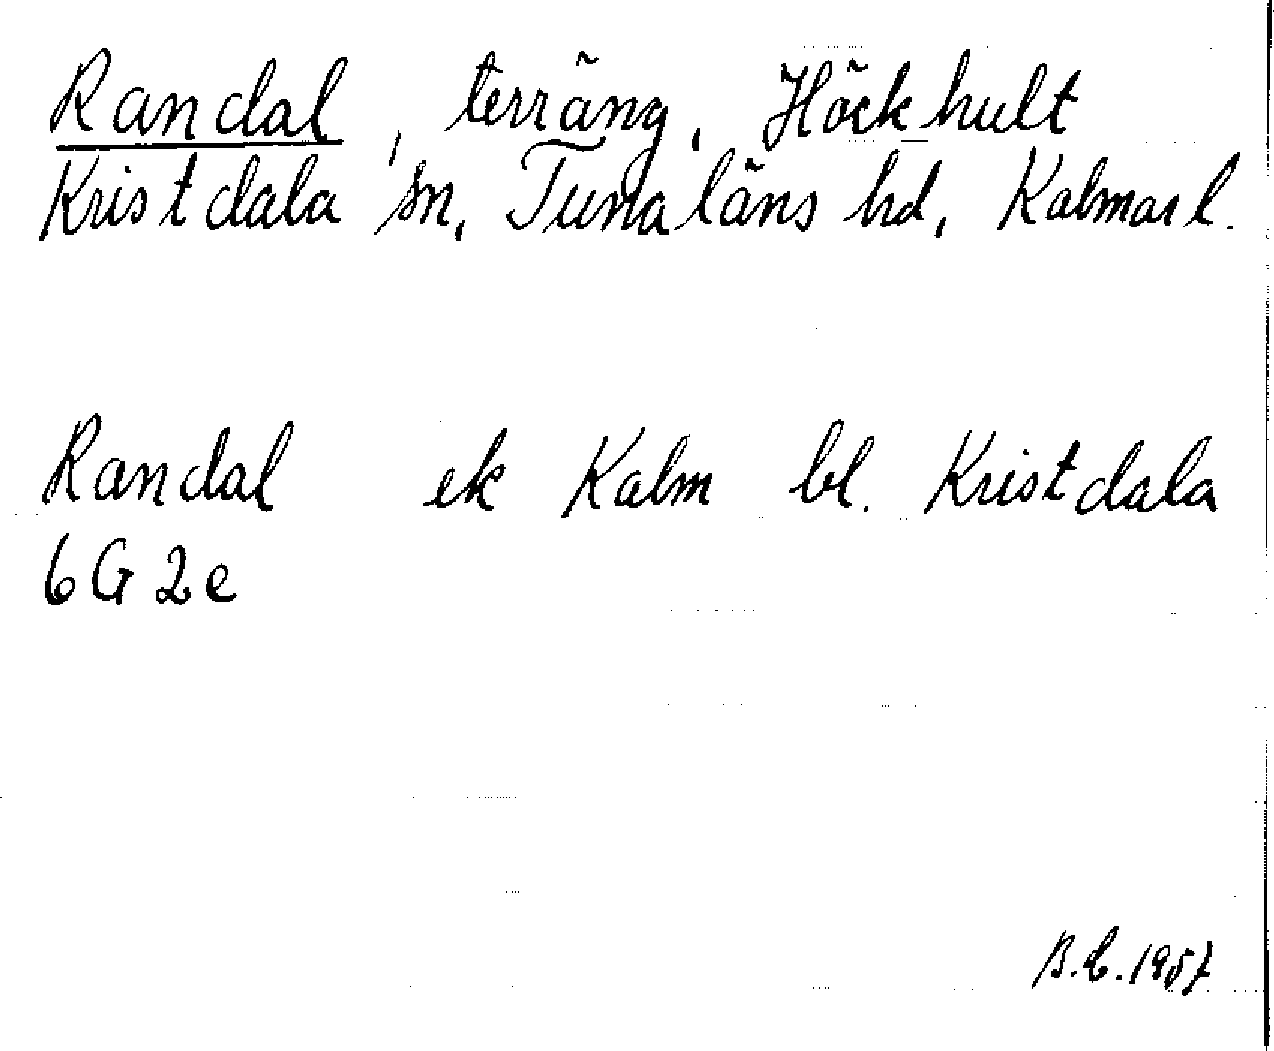 Randal, terräng, Höckhult
Kristdala sn, Tunaläns hd, Kalmar l.
Randal ek Kalm bl. Kristdala
6G2e
B.C. 1957